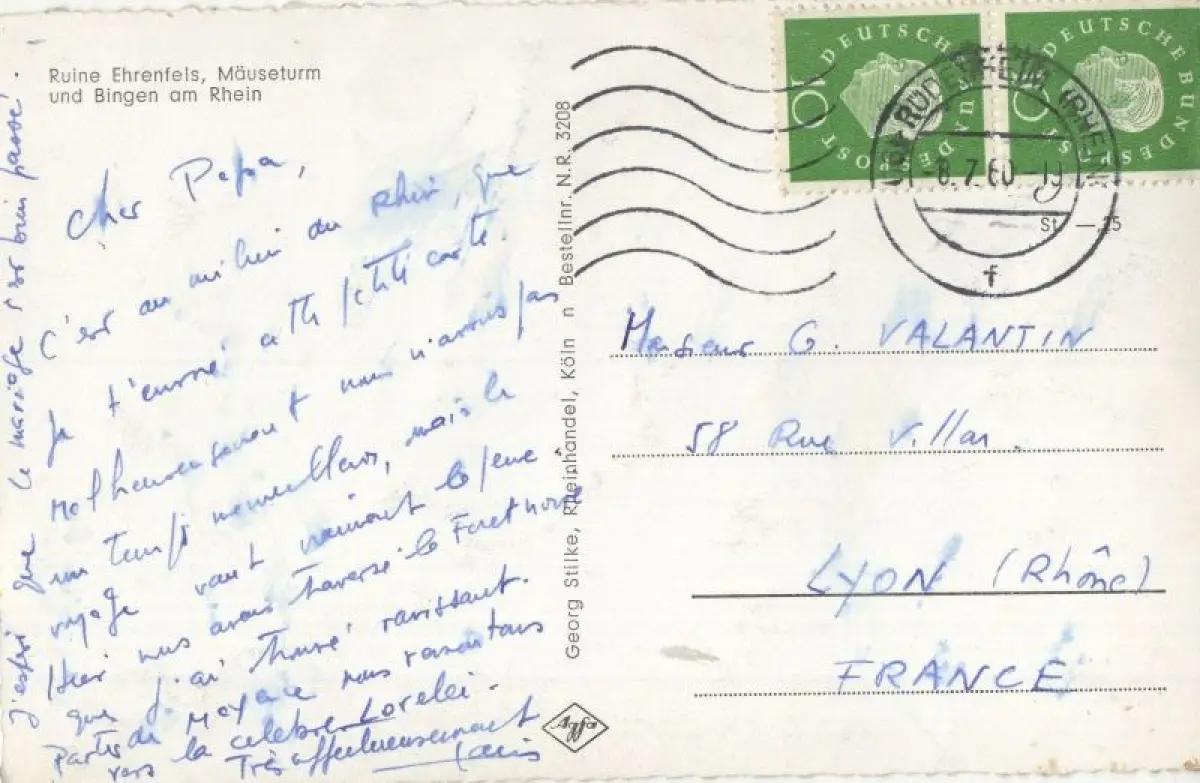 Ruine Ehrenfels, Mäuseturm
und Bingen am Rhein
Cher Papa,
C'est au milieu du Rhin, que
je t'envoie cette petite carte.
Malheureusement nous n'avons pas
un temps merveilleux, mais le
voyage vaut vraiment la peine.
Hier nous avons traversé la Foret noire
que j'ai trouvé ravissant.
Partis de Mayence nous remontons
vers la celebre Lorelei.
Très affectueusement
J'espère que le mariage s'est bien passé.
Georg Stilke, Rheinhandel, Köln n Bestellnr. N.R. 3208
DEUTSCHE BUNDESPOST
10
DEUTSCHE BUNDESPOST
10
RÜDESHEIM (RHEIN)
-8.7.60-19
f
St
25
Monsieur G. VALANTIN
58 Rue Villar.
LYON (Rhône)
FRANCE